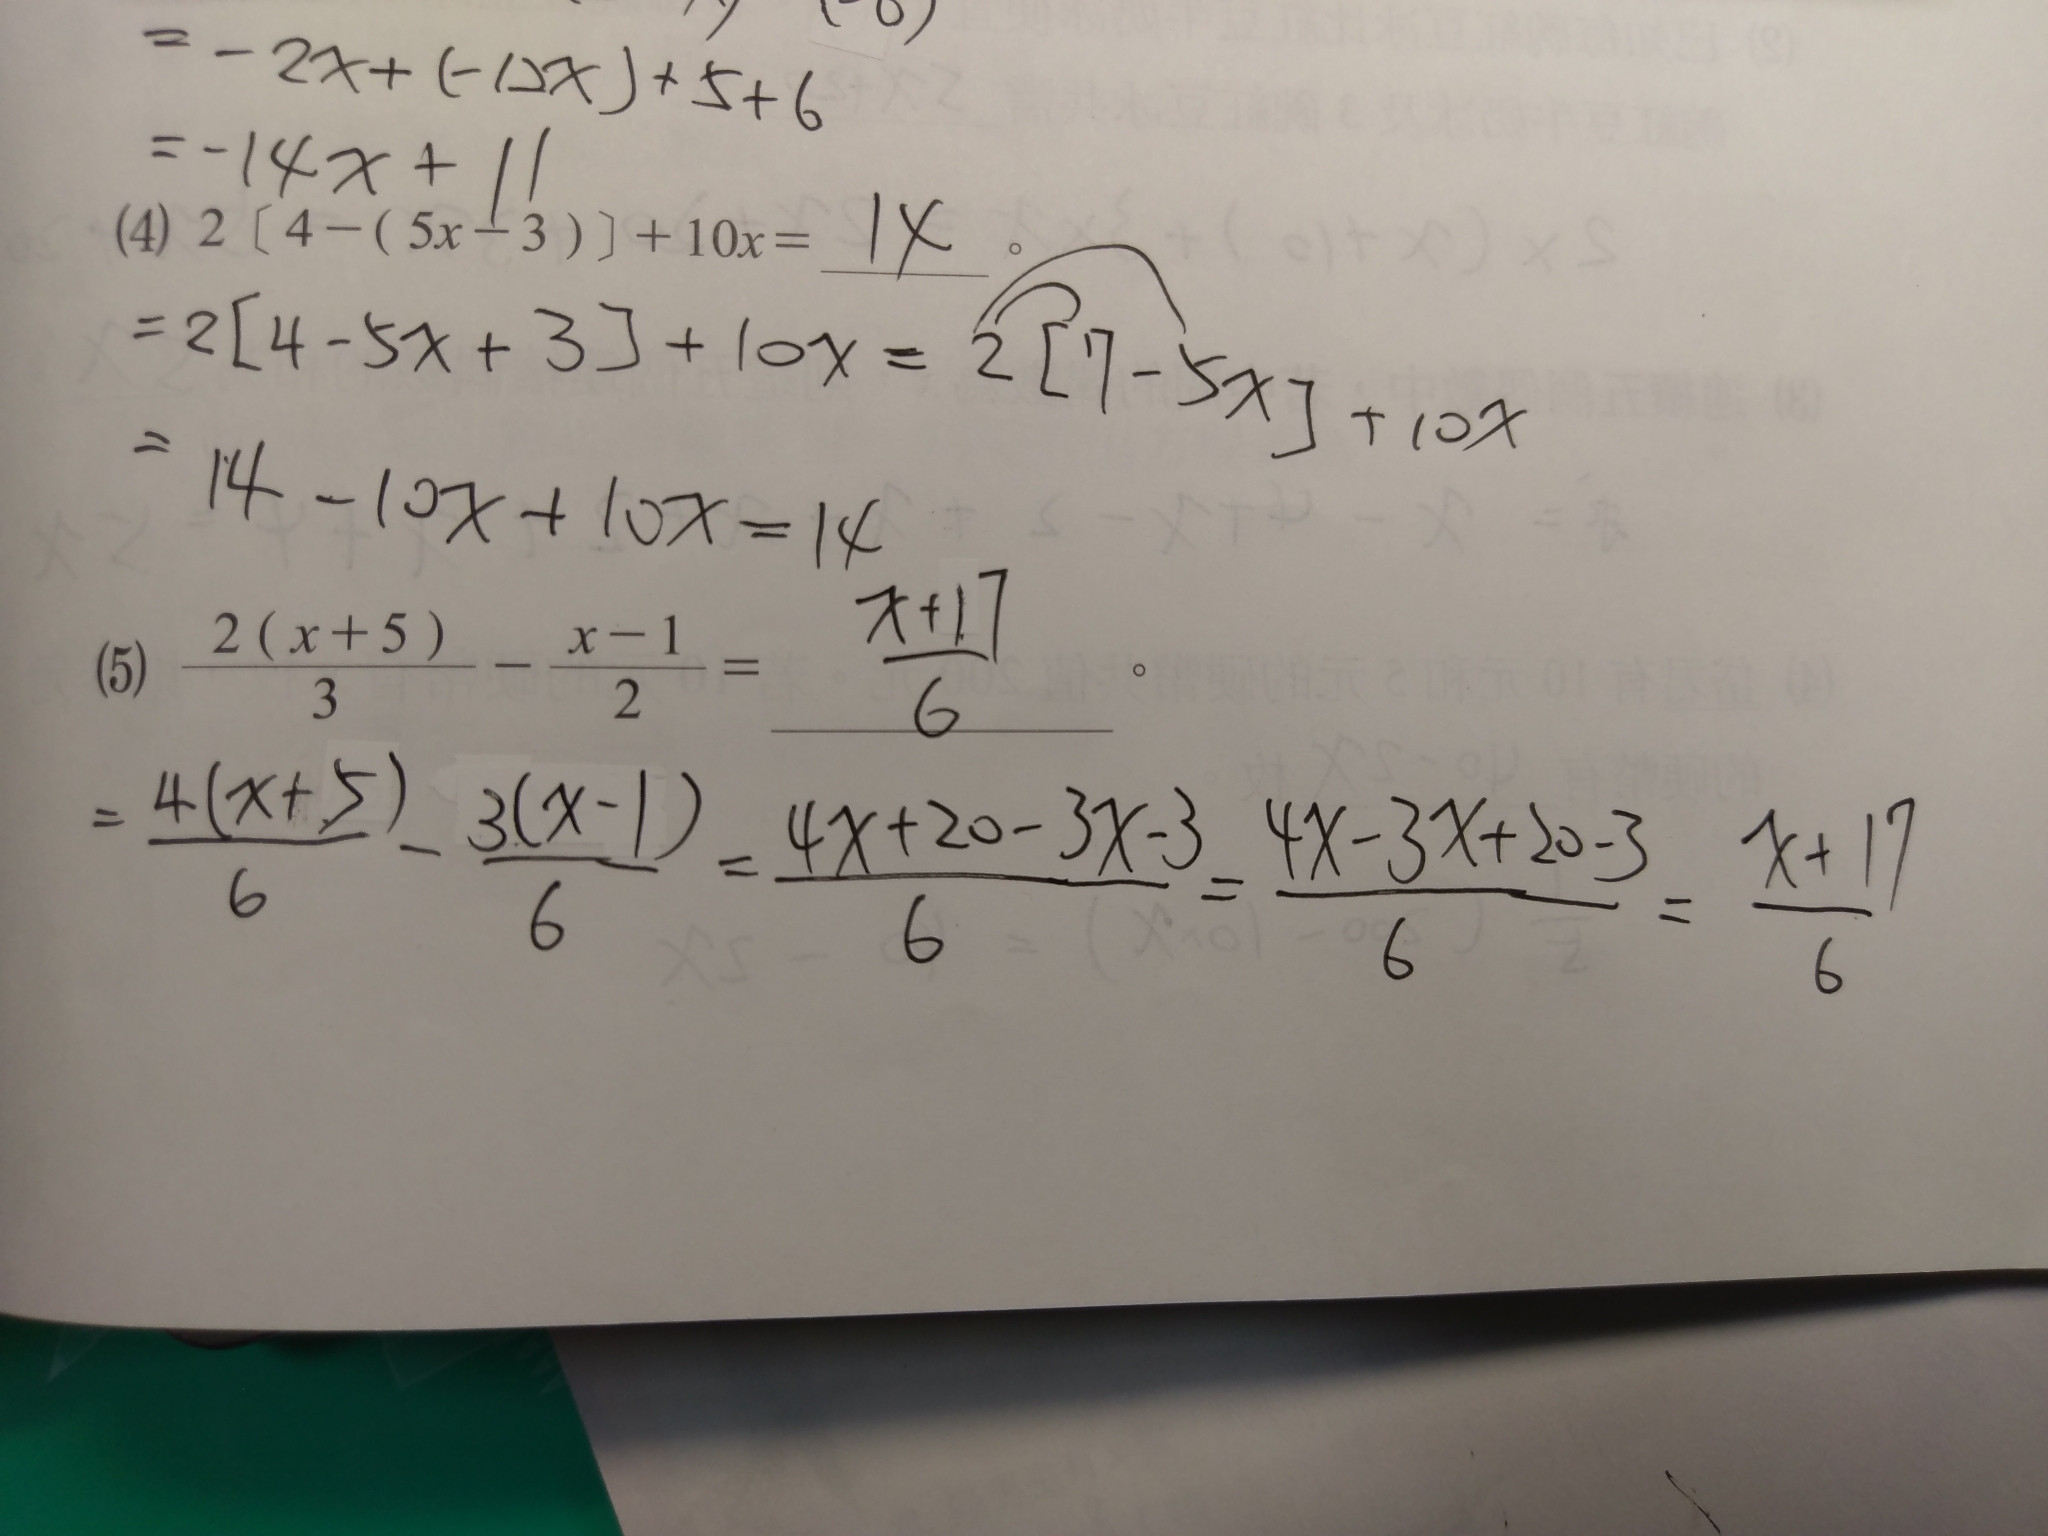 = -2x+(-12x)+5+6
= -14x + 11
(4) 2〔4-(5x-3)〕+10x= 14 。
= 2[4-5x+3]+10x = 2[7-5x]+10x
= 14-10x+10x=14
(5) \frac{2(x+5)}{3} - \frac{x-1}{2} = \frac{x+17}{6} 。
= \frac{4(x+5)}{6} - \frac{3(x-1)}{6} = \frac{4x+20-3x-3}{6} = \frac{4x-3x+20-3}{6} = \frac{x+17}{6}